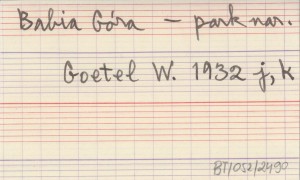 Babia Góra – park nar.
Goetel W. 1932 j, k
BT/052/2490